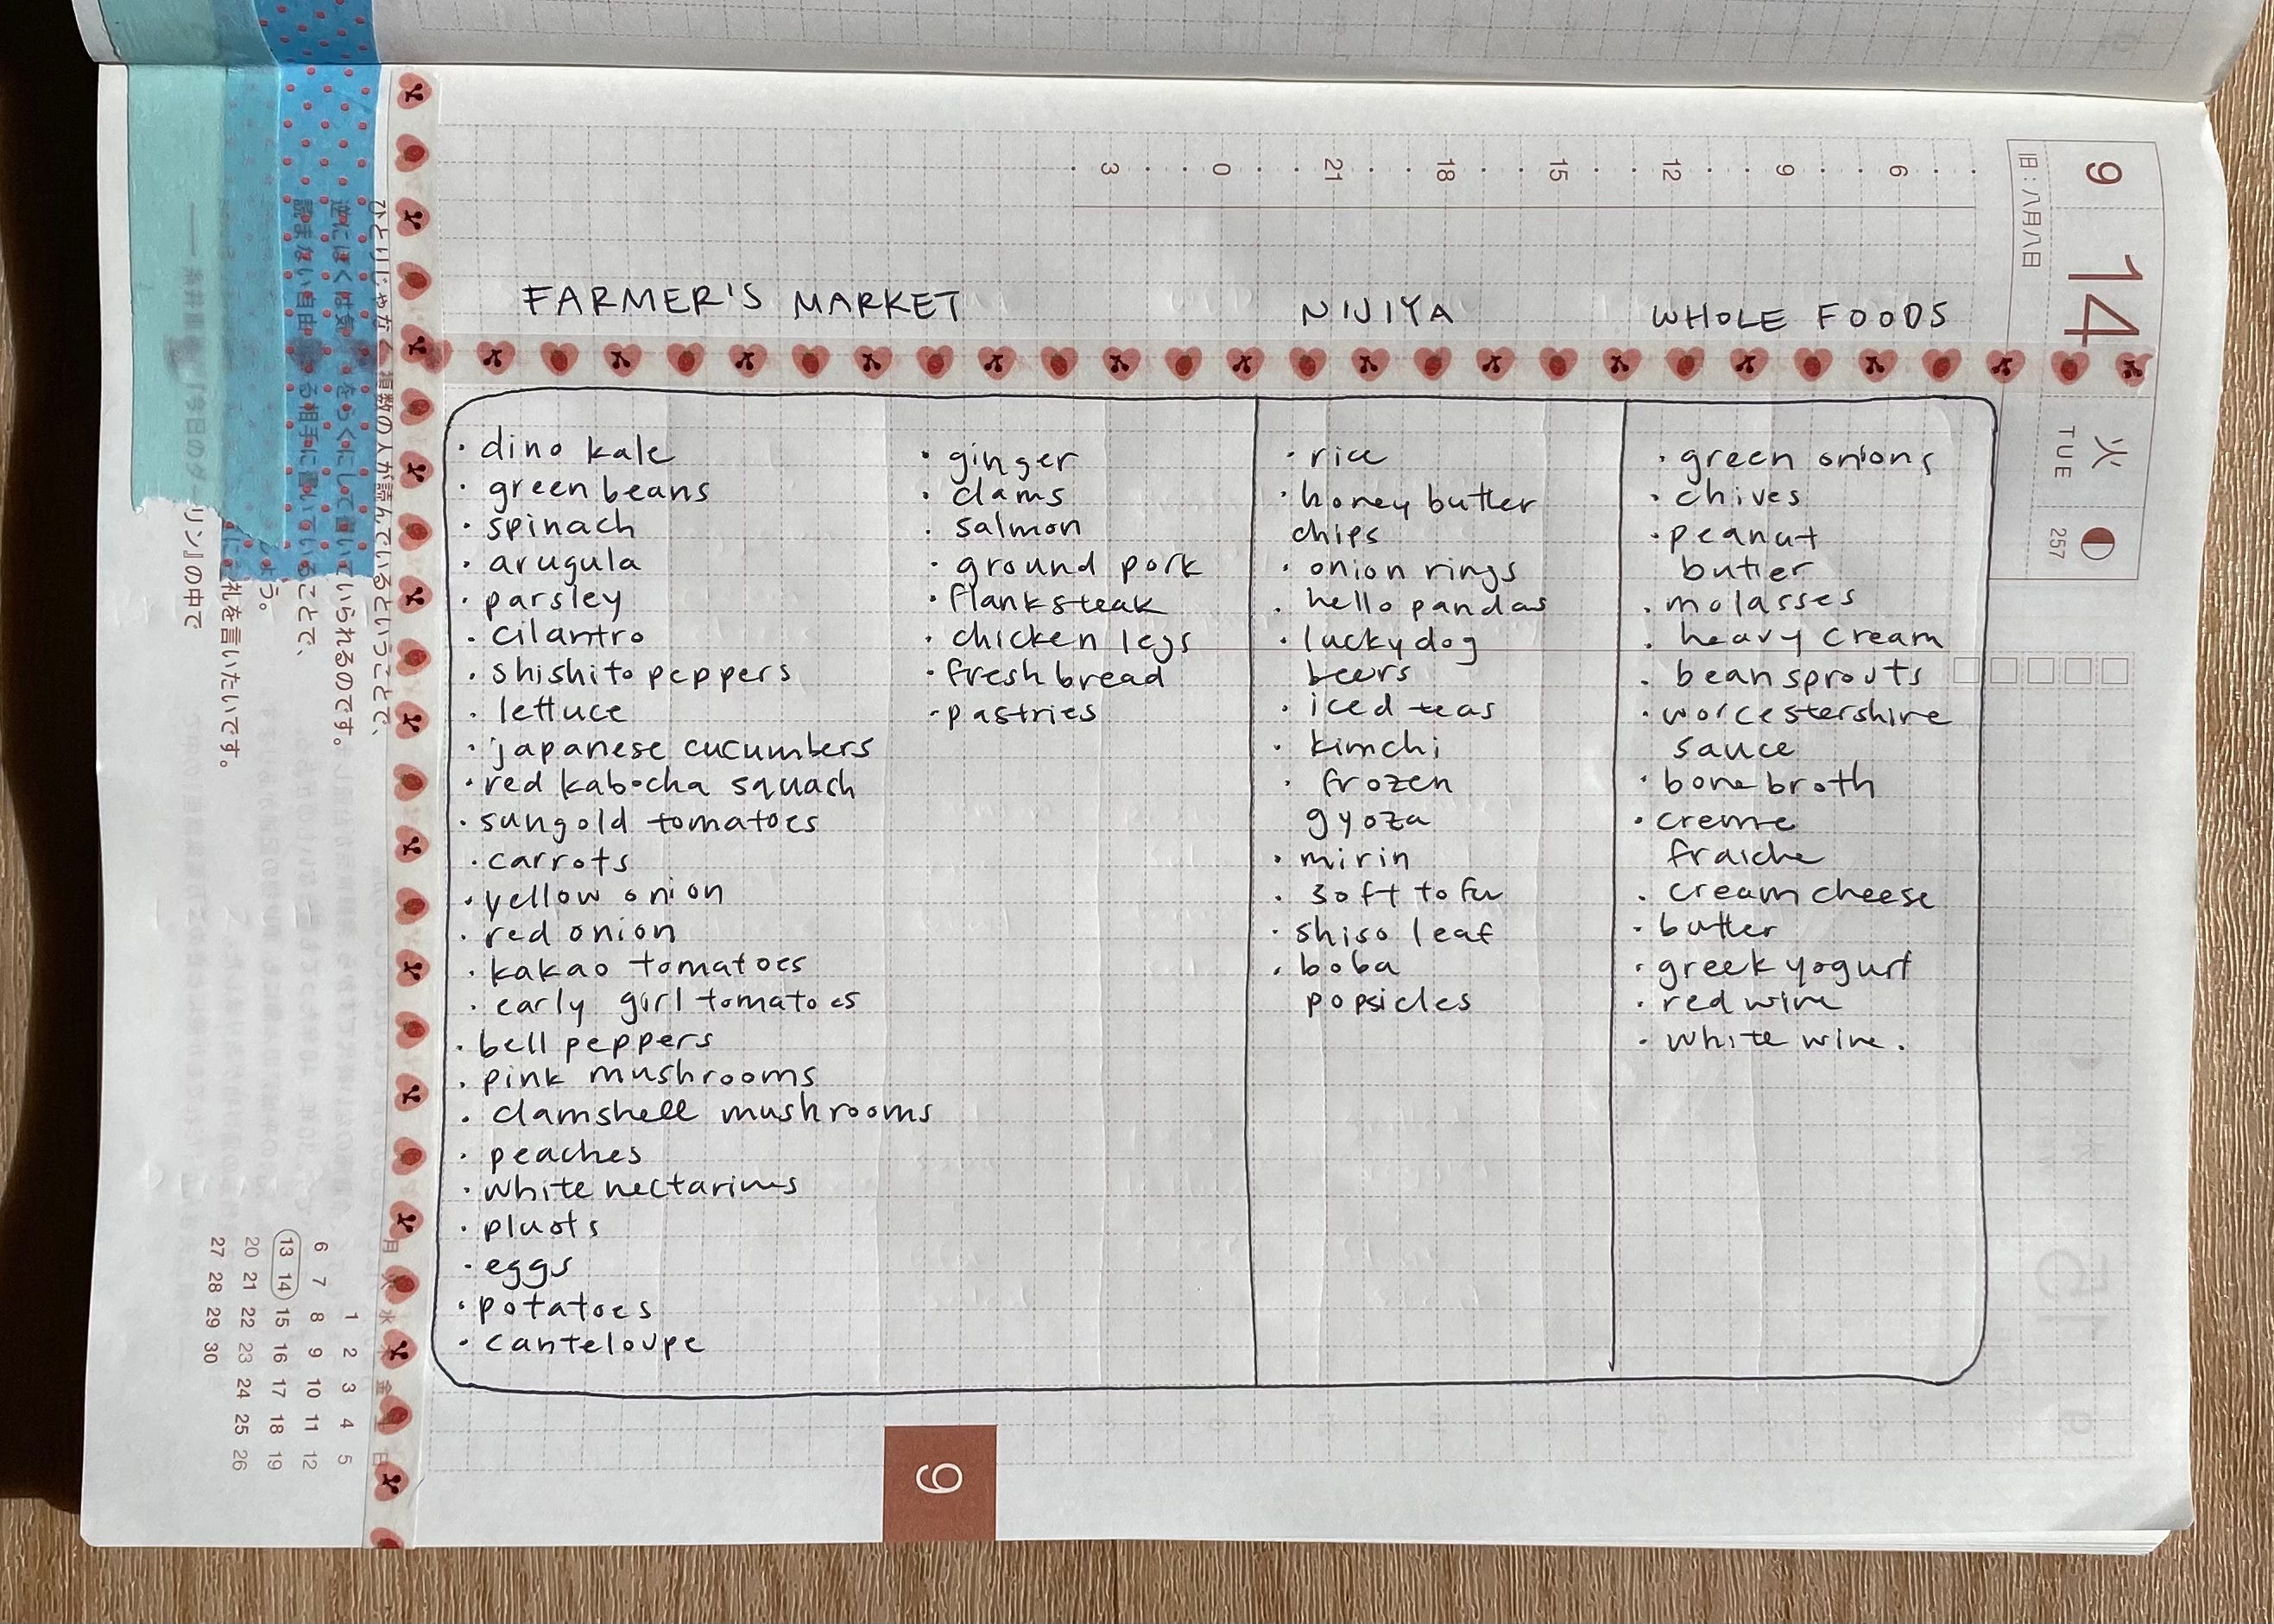 FARMER'S MARKET
· dino kale
· green beans
· spinach
· arugula
· parsley
· cilantro
· shishito peppers
· lettuce
· japanese cucumbers
· red kabocha squash
· sungold tomatoes
· carrots
· yellow onion
· red onion
· kakao tomatoes
· early girl tomatoes
· bell peppers
· pink mushrooms
· clamshell mushrooms
· peaches
· white nectarines
· pluots
· eggs
· potatoes
· canteloupe
· ginger
· clams
· salmon
· ground pork
· flank steak
· chicken legs
· fresh bread
· pastries
NIJIYA
· rice
· honey butter
chips
· onion rings
· hello pandas
· lucky dog
beers
· iced teas
· kimchi
· frozen
gyoza
· mirin
· soft tofu
· shiso leaf
· boba
popsicles
WHOLE FOODS
· green onions
· chives
· peanut
butter
· molasses
· heavy cream
· bean sprouts
· worcestershire
sauce
· bone broth
· creme
fraiche
· cream cheese
· butter
· greek yogurt
· red wine
· white wine.
9
14
旧・八月八日
火
TUE
257
6 9 12 15 18 21 0 3
ひとりじゃなく複数の人が読んでいるということで、
ていられるのです。
ことで、
礼を言いたいです。
リン』の中で
月 火 水 金 日
1 2 3 4 5
6 7 8 9 10 11 12
13 14 15 16 17 18 19
20 21 22 23 24 25 26
27 28 29 30
9